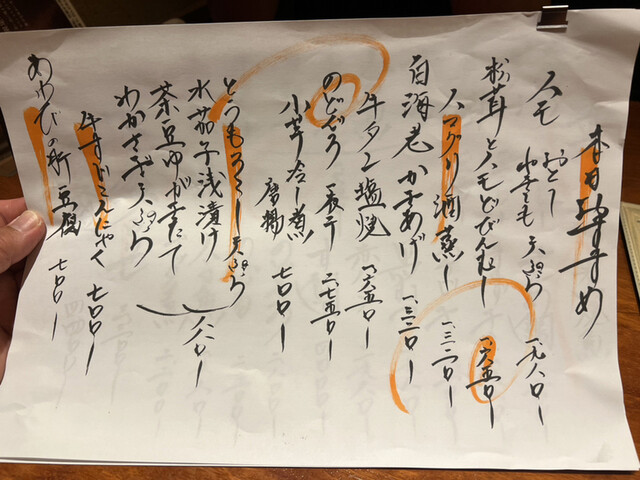 本日のおすすめ
ハモ おとし 天ぷら 一、九八〇ー
松茸とハモどびんむし 一、六五〇ー
ハマグリ酒蒸し 一、三二〇ー
白海老かきあげ 一、三二〇ー
牛タン塩焼 一、六五〇ー
のどぐろ 一夜干 二、七五〇ー
小芋冷し煮 唐揚 七〇〇ー
とうもろこし天ぷら
水茄子浅漬け
茶豆ゆがきたて 八八〇ー
わかさぎ天ぷら
牛すじこんにゃく 七〇〇ー
あわびの肝豆腐 七〇〇ー